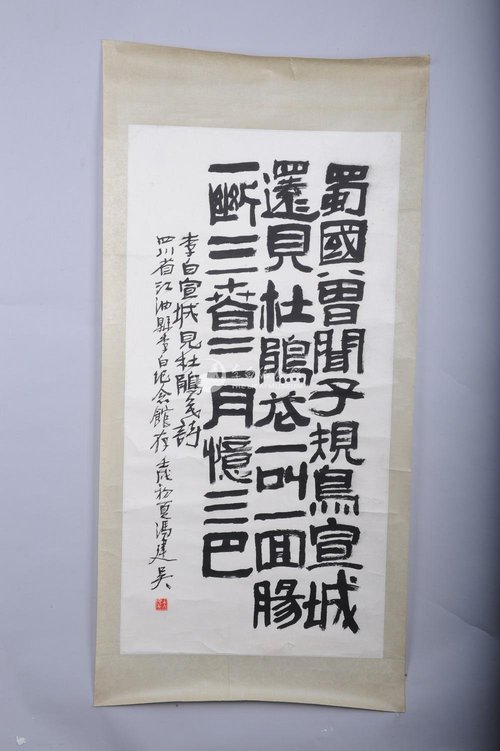 蜀國曾聞子規鳥宣城
還見杜鵑花一叫一囬腸
一斷三春三月憶三巴
李白宣城見杜鵑花詩
四川省江油縣李白纪念館存 壬戌初夏馮建吳